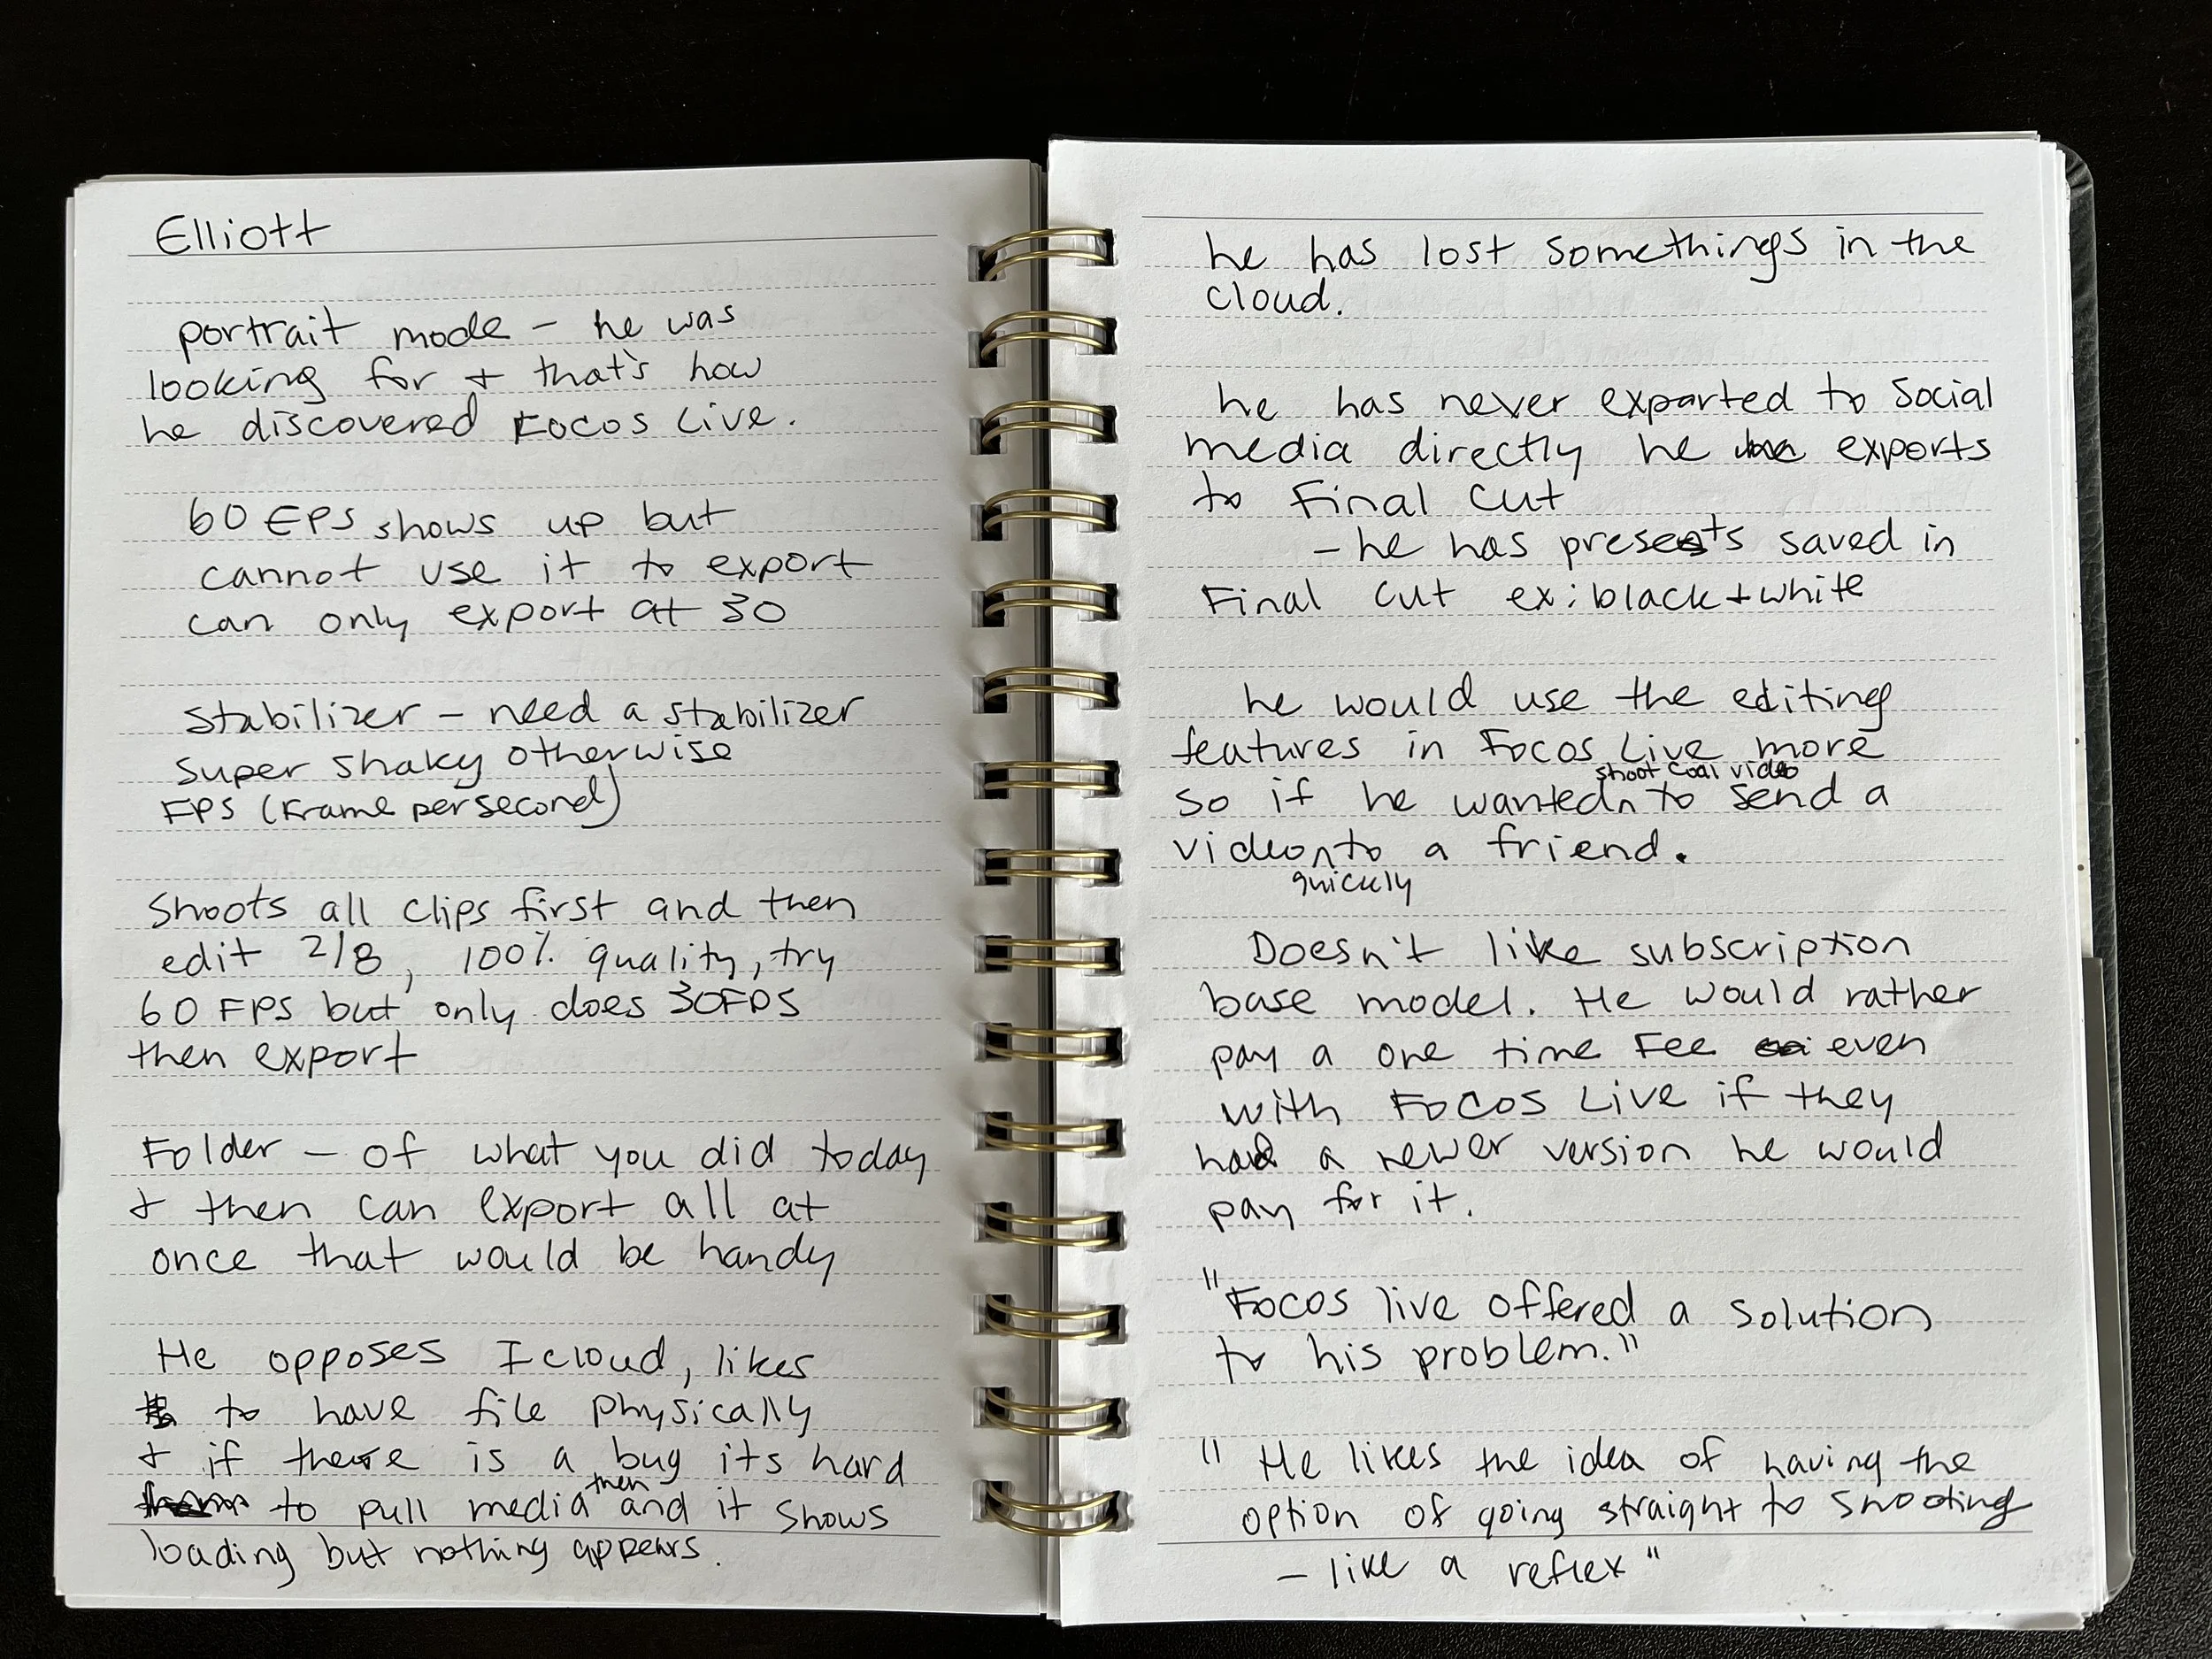 Elliott
portrait mode - he was
looking for + that's how
he discovered Focos Live.
60 FPS shows up but
cannot use it to export
can only export at 30
Stabilizer - need a stabilizer
super shaky otherwise
FPS (Frame per second)
Shoots all clips first and then
edit 2/8, 100% quality, try
60 FPS but only does 30FPS
then export
Folder - of what you did today
+ then can export all at
once that would be handy
He opposes Icloud, likes
to have file physically
+ if there is a bug its hard
then
to pull media and it shows
loading but nothing appears.
he has lost somethings in the
cloud.
he has never exported to social
media directly he exports
to Final Cut
- he has presets saved in
Final Cut ex: black + white
he would use the editing
features in Focos Live more
shoot cool video
so if he wanted to send a
video to a friend.
quickly
Doesn't like subscription
base model. He would rather
pay a one time Fee even
with Focos Live if they
had a newer version he would
pay for it.
"Focos live offered a solution
to his problem."
" He likes the idea of having the
option of going straight to shooting
- like a reflex"